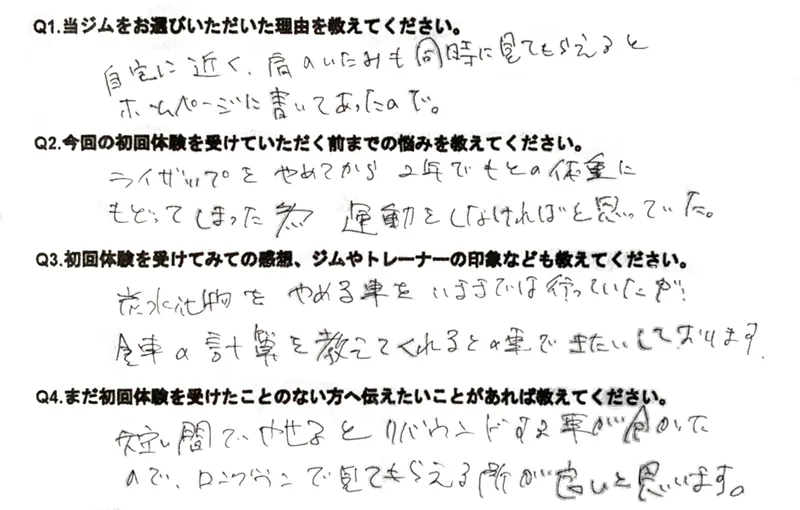 Q1.当ジムをお選びいただいた理由を教えてください。
自宅に近く、肩のいたみも同時に見てもらえると
ホームページに書いてあったので。
Q2.今回の初回体験を受けていただく前までの悩みを教えてください。
ライザップをやめてから2年でもとの体重に
もどってしまった為 運動をしなければと思っていた。
Q3.初回体験を受けてみての感想、ジムやトレーナーの印象なども教えてください。
炭水化物をやめる事をいままでは行っていたが、
食事の計算を教えてくれるとの事できたいしております。
Q4.まだ初回体験を受けたことのない方へ伝えたいことがあれば教えてください。
短い間でやせるとリバウンドする事が分かった
ので、ロングランで見てもらえる所が良いと思います。